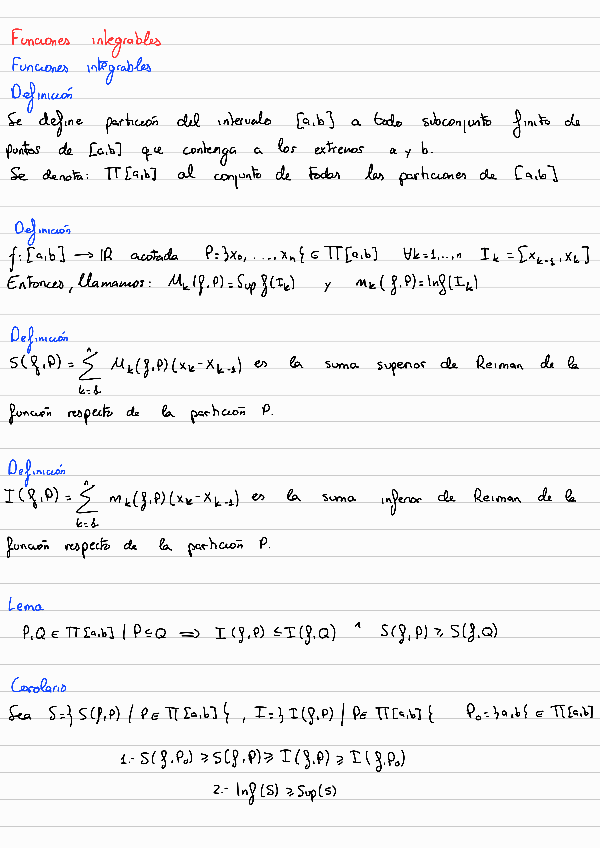 Funciones integrables
Funciones integrables
Definición
Se define partición del intervalo [a,b] a todo subconjunto finito de
puntos de [a,b] que contenga a los extremos a y b.
Se denota: Π[a,b] al conjunto de todas las particiones de [a,b]
Definición
f:[a,b] → ℝ acotada P={x₀,...,xₙ} ∈ Π[a,b] ∀k=1,..,n Iₖ=[xₖ₋₁,xₖ]
Entonces, llamamos: Mₖ(f,P)=Sup f(Iₖ) y mₖ(f,P)=Inf f(Iₖ)
Definición
S(f,P) = ∑ₖ₌₁ⁿ Mₖ(f,P)(xₖ-xₖ₋₁) es la suma superior de Reiman de la
función respecto de la partición P.
Definición
I(f,P) = ∑ₖ₌₁ⁿ mₖ(f,P)(xₖ-xₖ₋₁) es la suma inferior de Reiman de la
función respecto de la partición P.
Lema
P,Q ∈ Π[a,b] / P⊆Q ⇒ I(f,P) ≤ I(f,Q) ^ S(f,P) ≥ S(f,Q)
Corolario
Sea S={S(f,P) / P∈ Π[a,b]}, I={I(f,P) / P∈ Π[a,b]} P₀={a,b} ∈ Π[a,b]
1.- S(f,P₀) ≥ S(f,P) ≥ I(f,P) ≥ I(f,P₀)
2.- Inf(S) ≥ Sup(s)